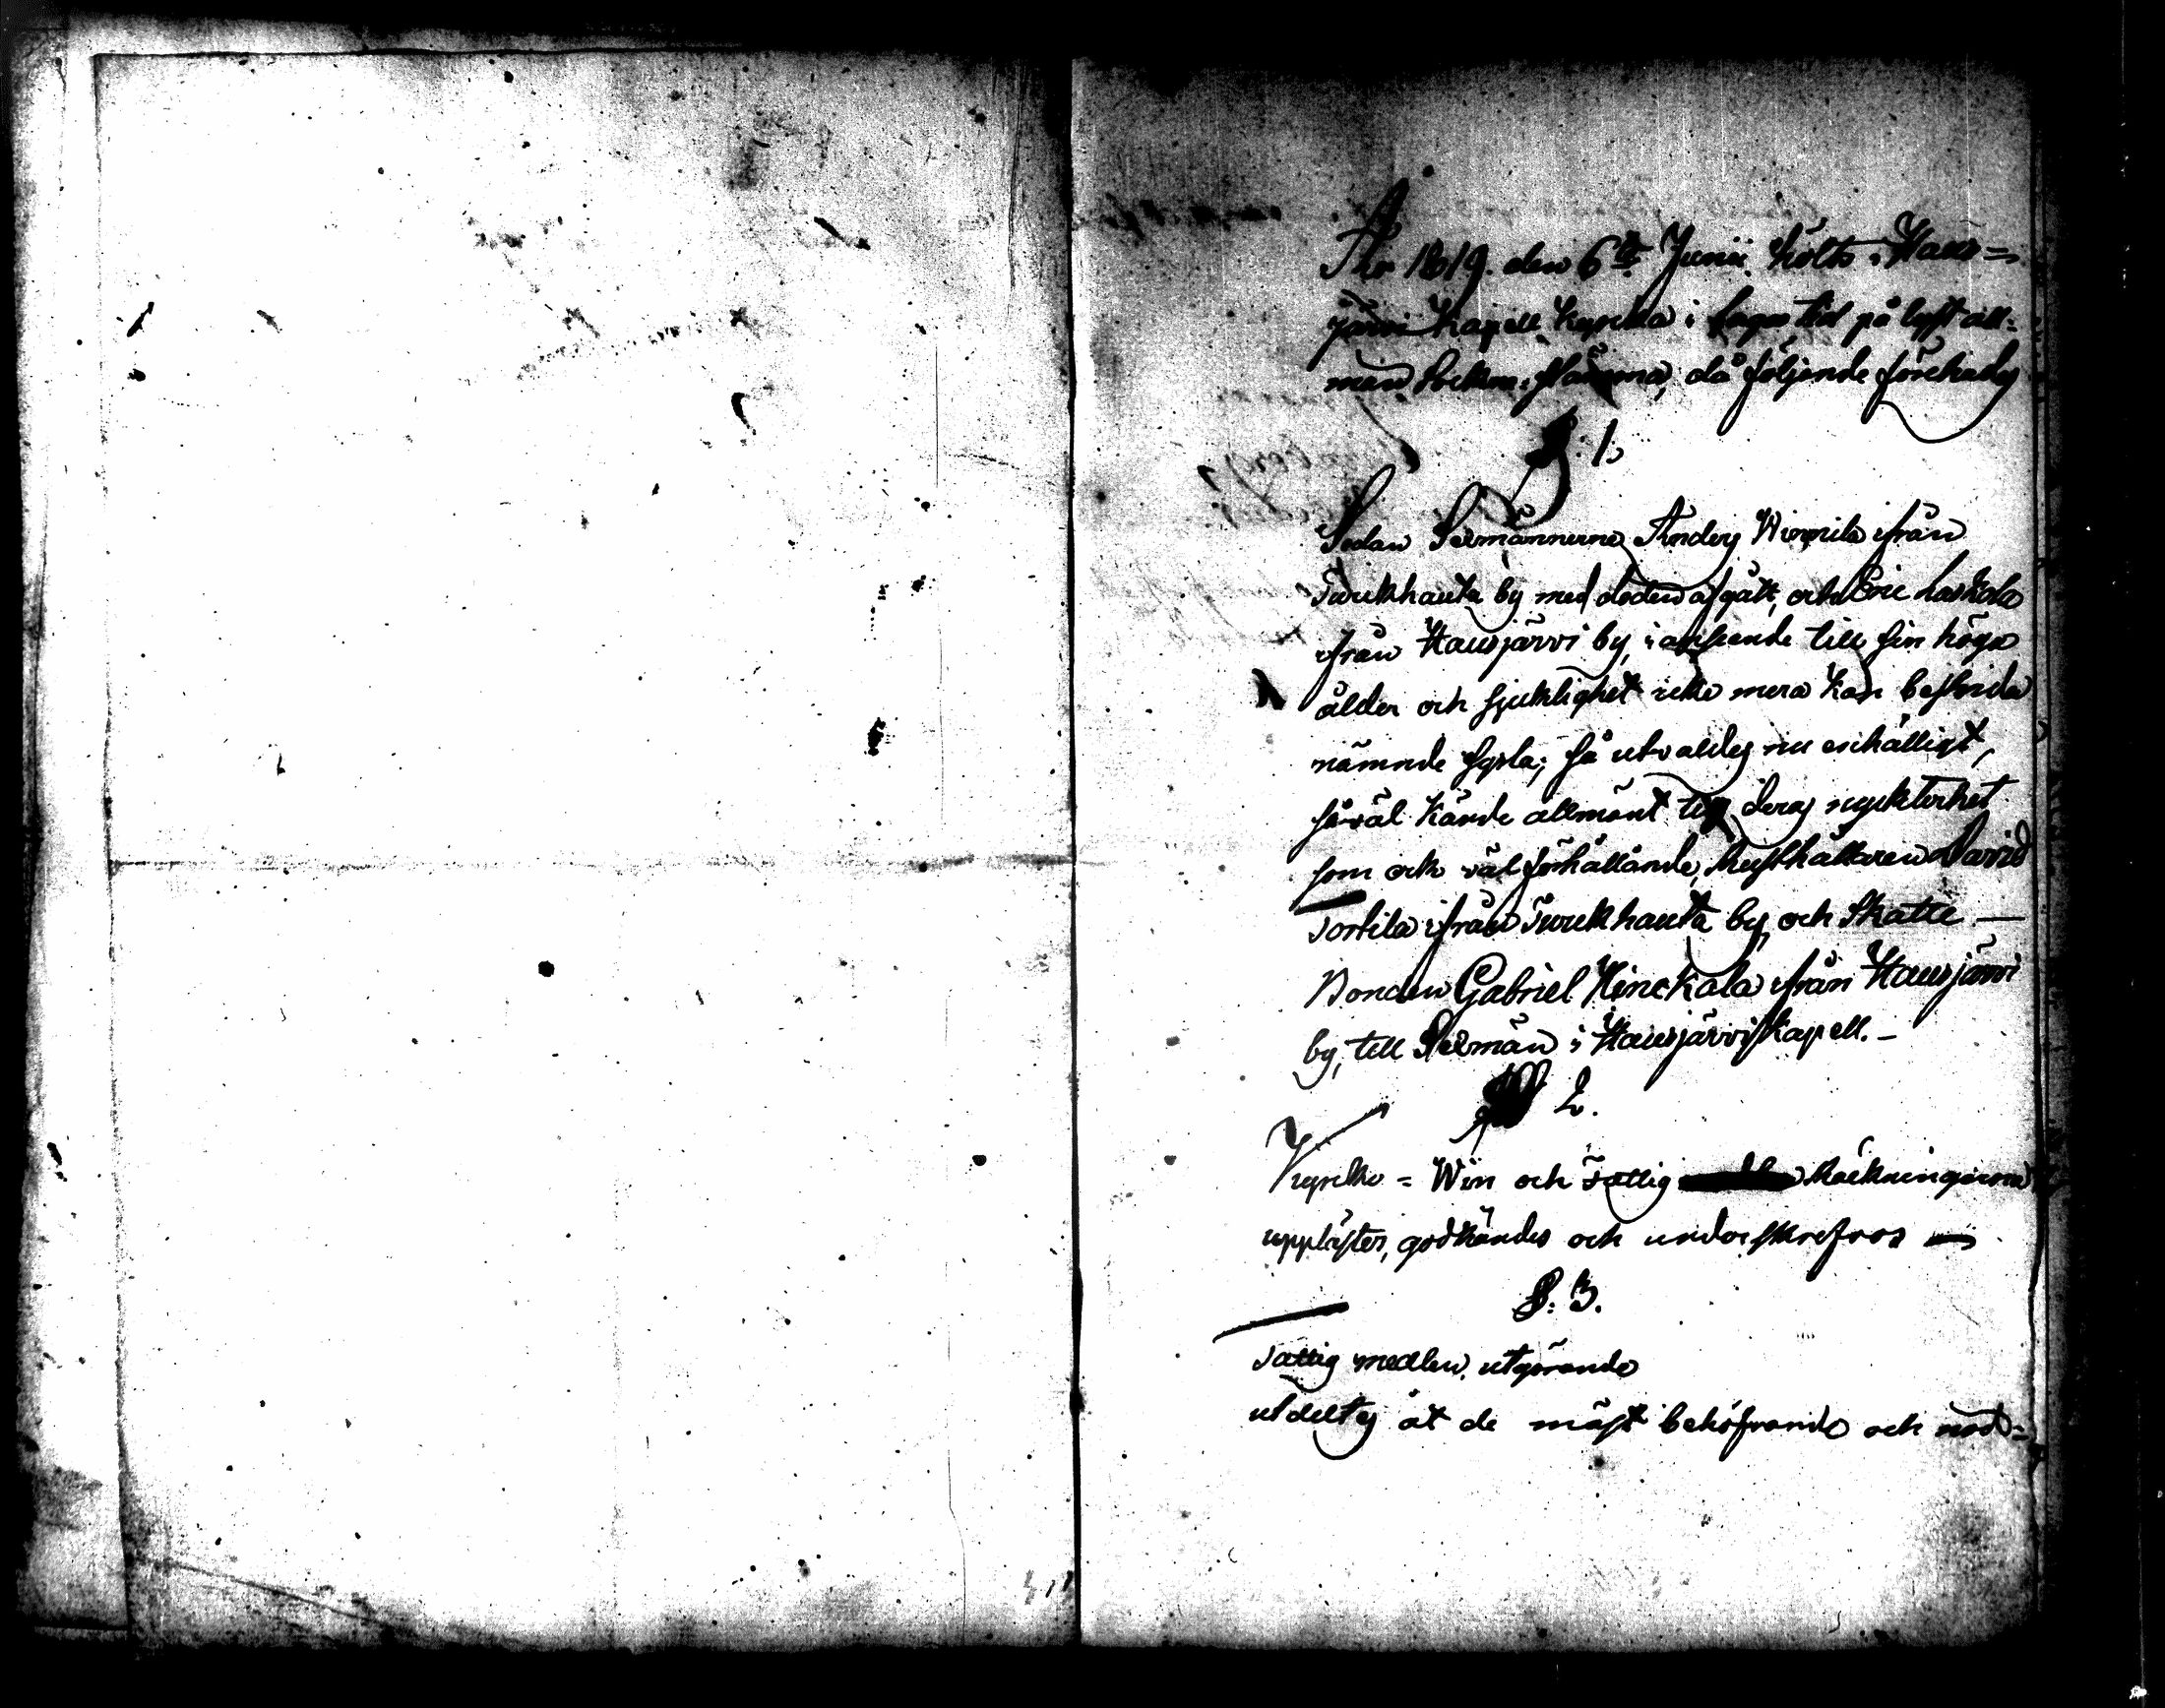 År 1819. den 6te Junii hölts i Haus=
järvi Kapell Kyrcka i laga tid på lyst all=
män Sockne-stämma, då följande förehades
§. 1.
Sedan Sexmännerne Anders Wippila ifrån
Turckhauta by med döden afgått, och Eric Laskala
ifrån Hausjärvi by, i anseende till sin höga
ålder och sjuklighet icke mera kan bestrida
nämnde sysla; så utvaldes nu enhälligt,
så väl kände allmänt till deras nyckterhet
som ock väl förhållande, Rusthållaren David
Torkila ifrån Turckhauta by, och Skatte
Bonden Gabriel Hinckala ifrån Hausjärvi
by, till Sexmän i Hausjärvi Kapell.
§ 2.
Kyrcko= Win och Fattig Räckningarna
upplästes, godkändes och underskrefvos
§: 3.
Fattig medlen, utgörande
utdeltes åt de mäst behöfvande och nöd=